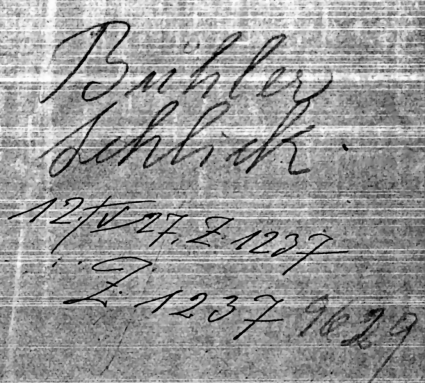 Bühler
Schlick.
12/V 27, Z. 1237
Z 1237 9629